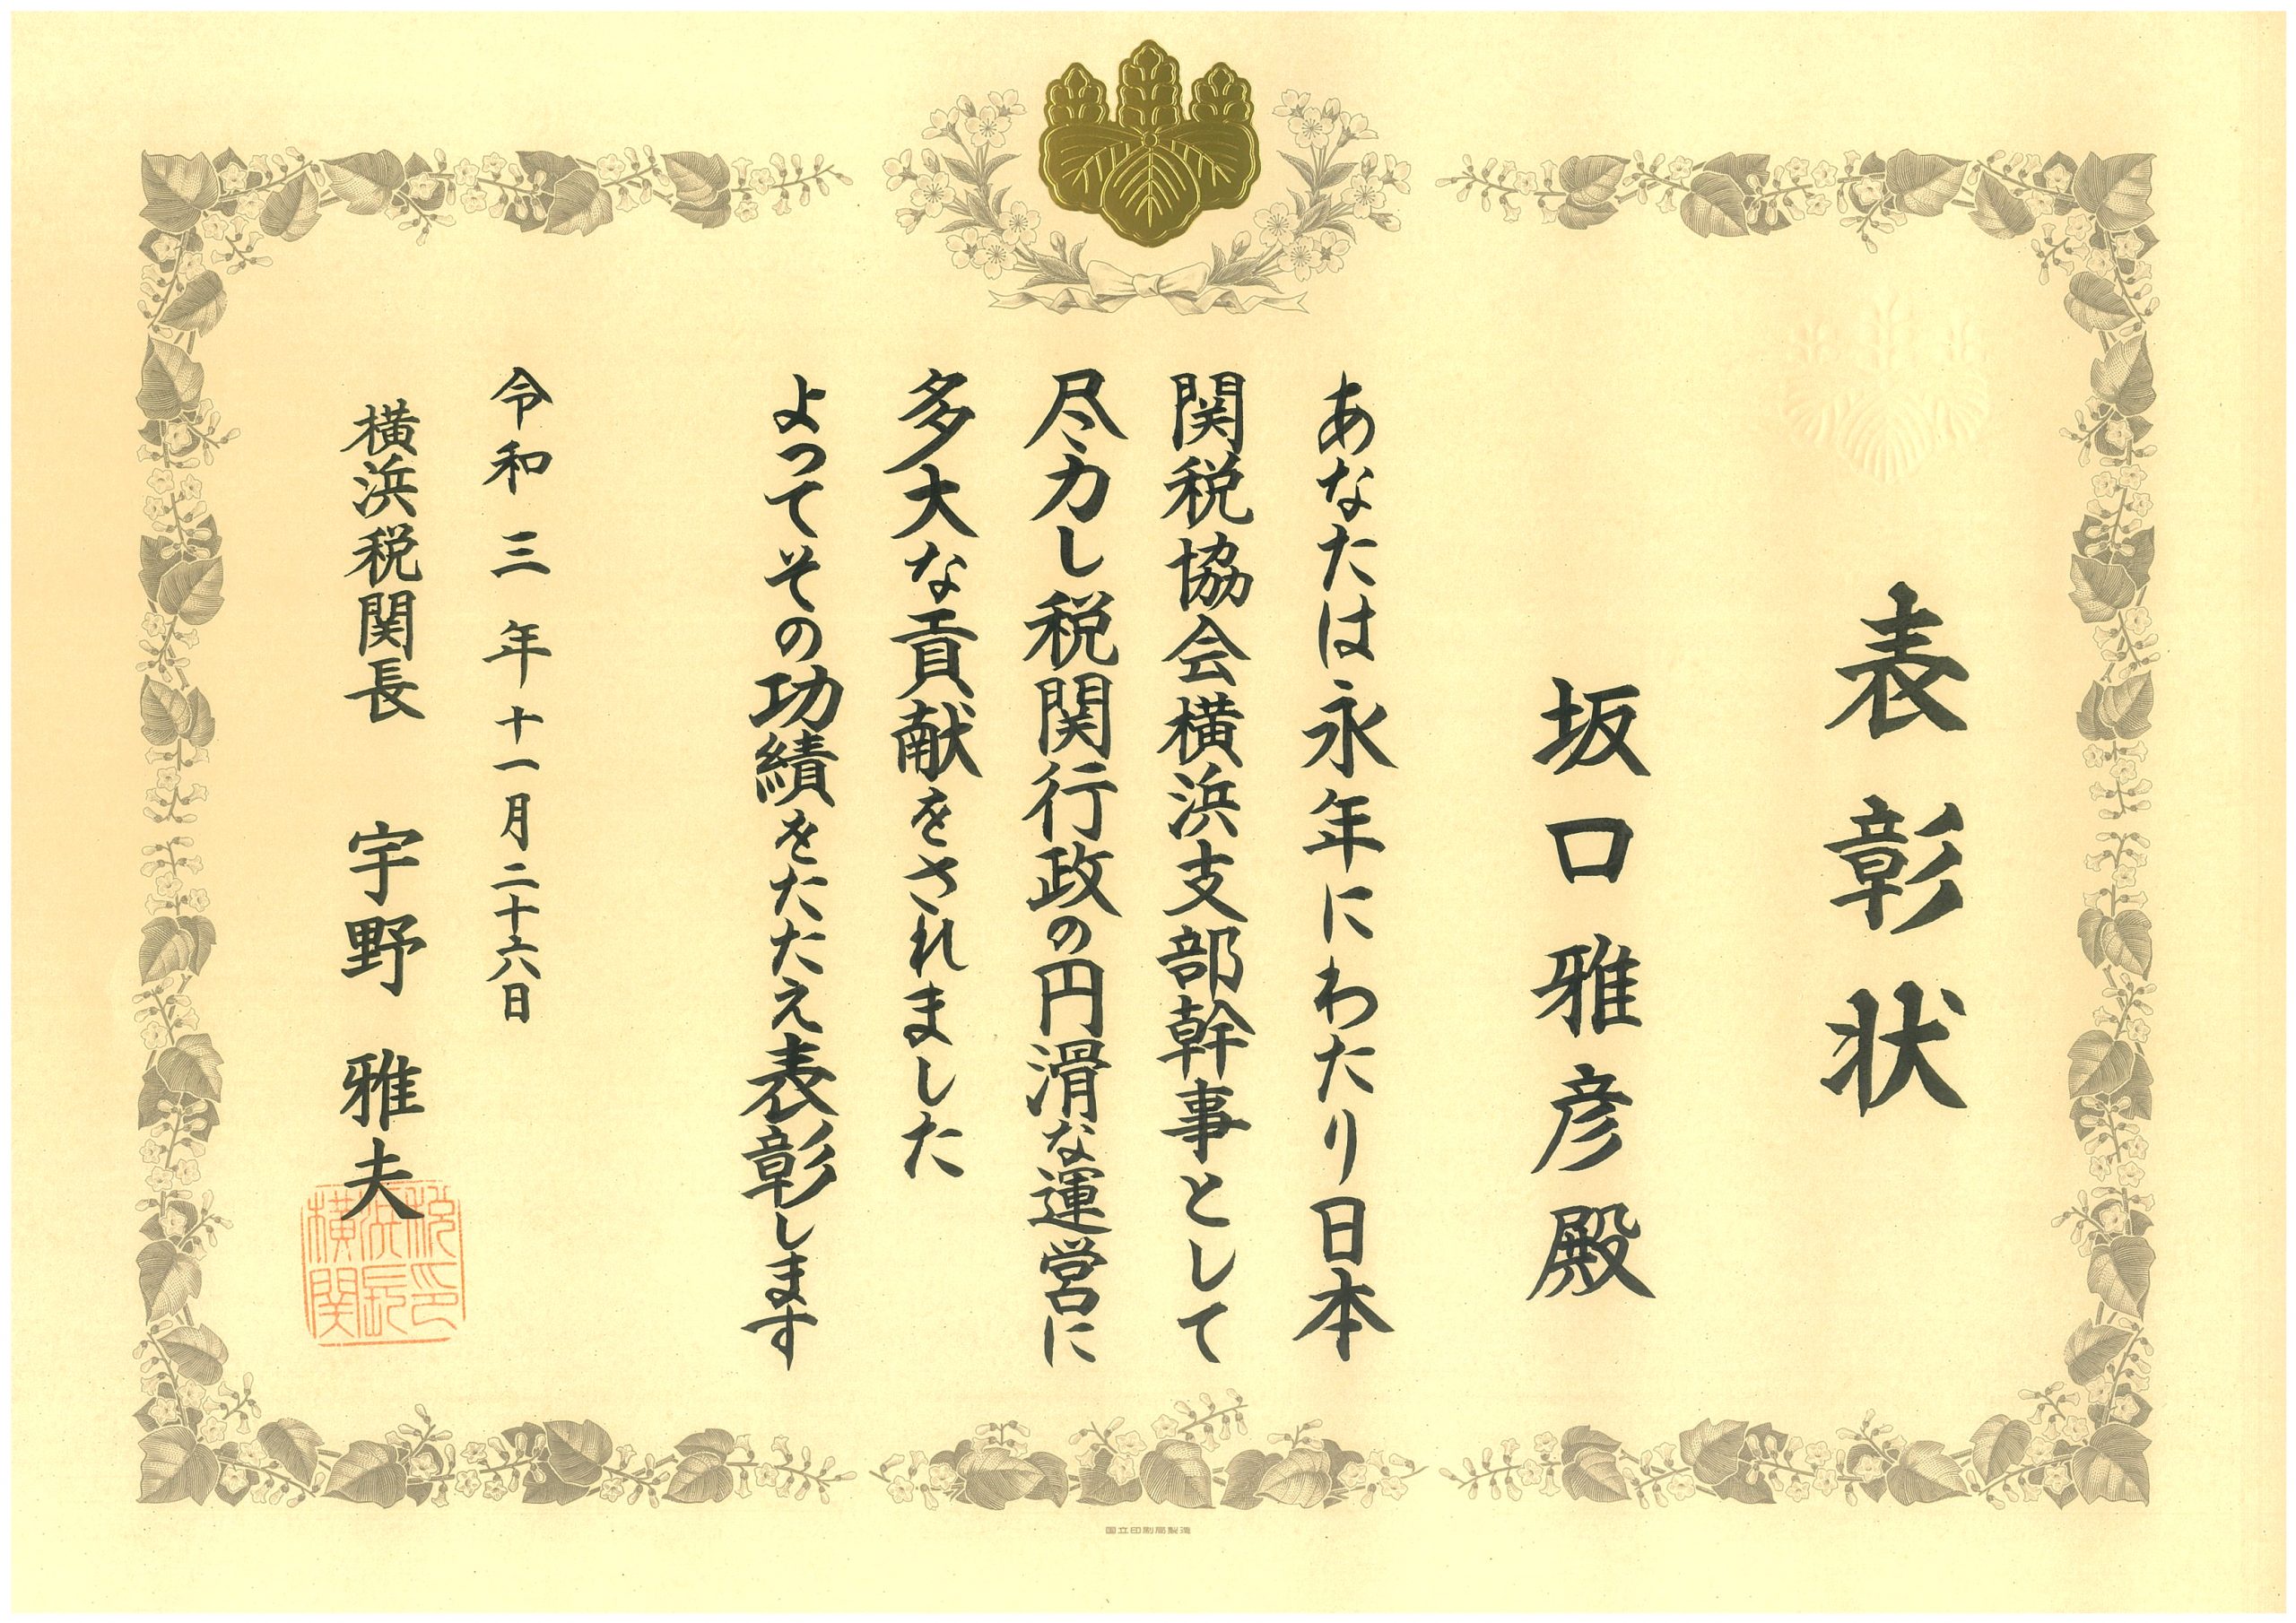 表彰状
坂口雅彦殿
あなたは永年にわたり日本
関税協会横浜支部幹事として
尽力し税関行政の円滑な運営に
多大な貢献をされました
よってその功績をたたえ表彰します
令和三年十一月二十六日
横浜税関長 宇野雅夫
税印
浜長
横関
国立印刷局製造